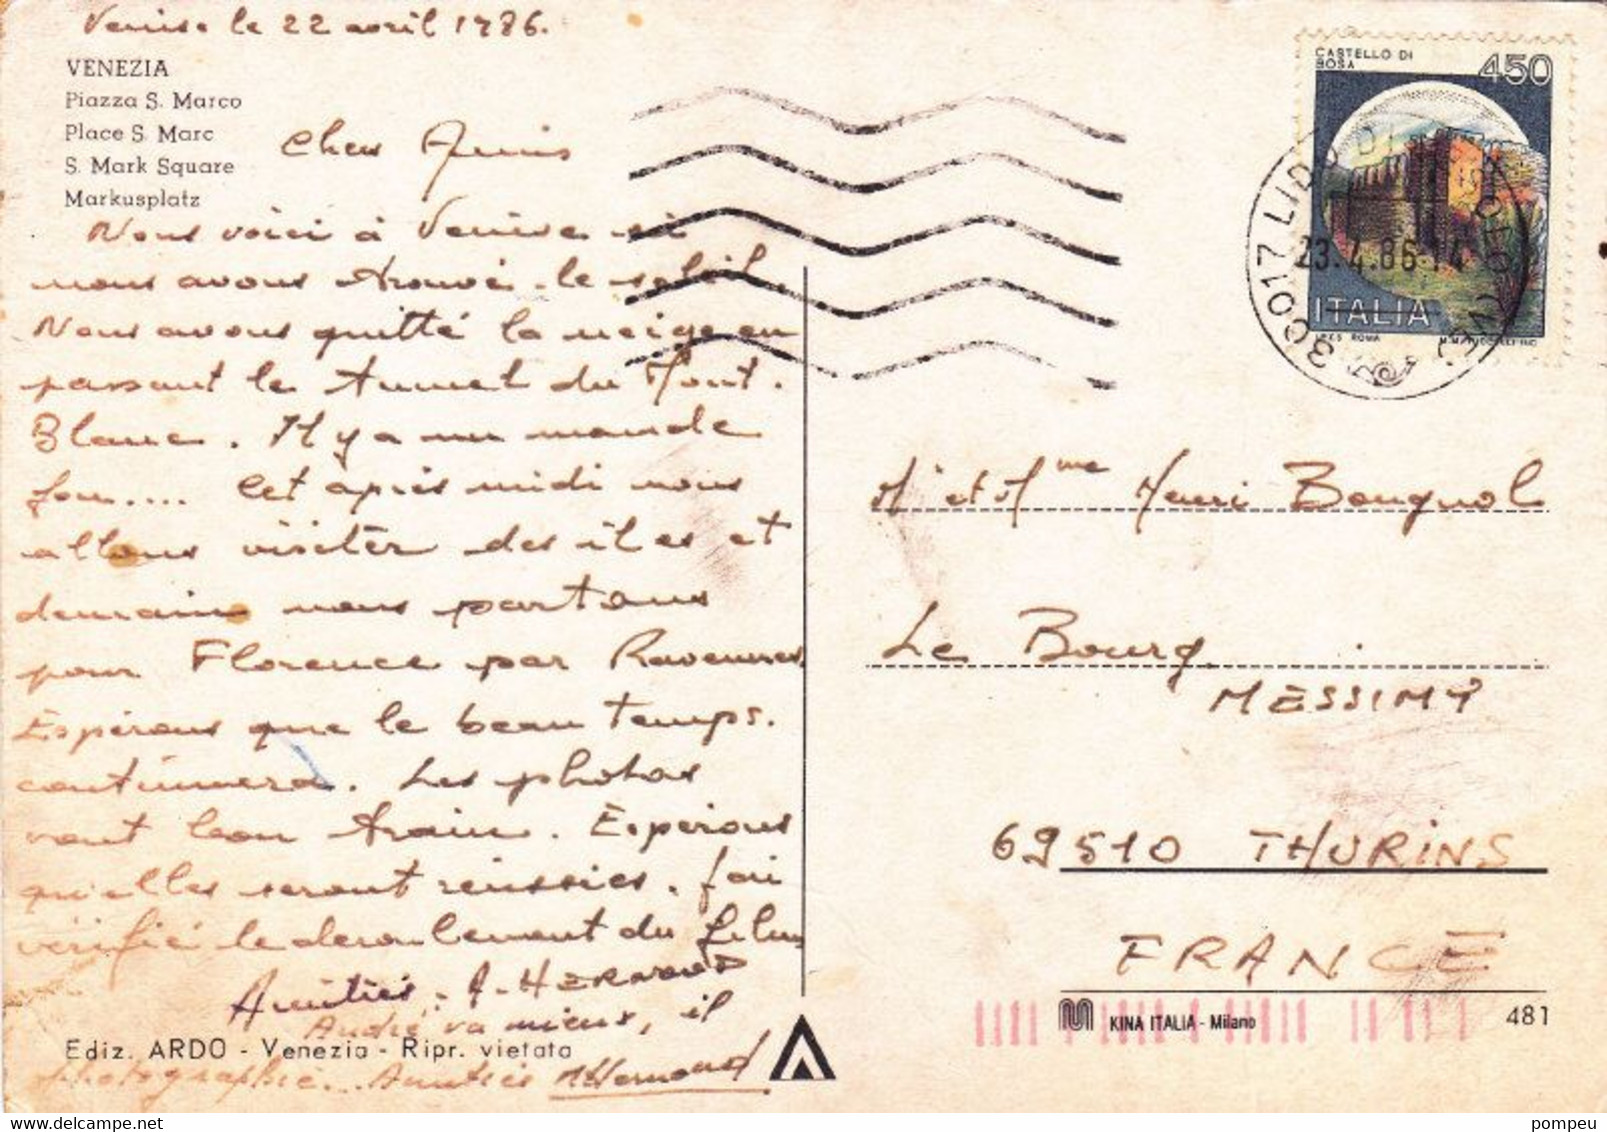 Venise le 22 avril 1986.
VENEZIA
Piazza S. Marco
Place S. Marc
S. Mark Square
Markusplatz
Chers Amis
Nous voici à Venise
nous avons trouvé le soleil.
Nous avons quitté la neige en
passant le tunnel du Mont.
Blanc. Il y a un monde
fou.... Cet après midi nous
allons visiter des îles et
demain nous partons
pour Florence par Ravennes
Espérons que le beau temps.
continuera. Les photos
vont bon train. Espérons
qu'elles seront réussies. J'ai
vérifié le deroulement du film
Amitiés. A. HERMAND
André va mieux, il
photographie... Amitiés
Ediz. ARDO - Venezia - Ripr. vietata
CASTELLO DI
BOSA
450
ITALIA
30017 LIDO DI
23.4.86-14
Mr et Mme Henri Bougnol
Le Bourg
MESSIMY
69510 THURINS
FRANCE
KINA ITALIA - Milano
481
pompeu